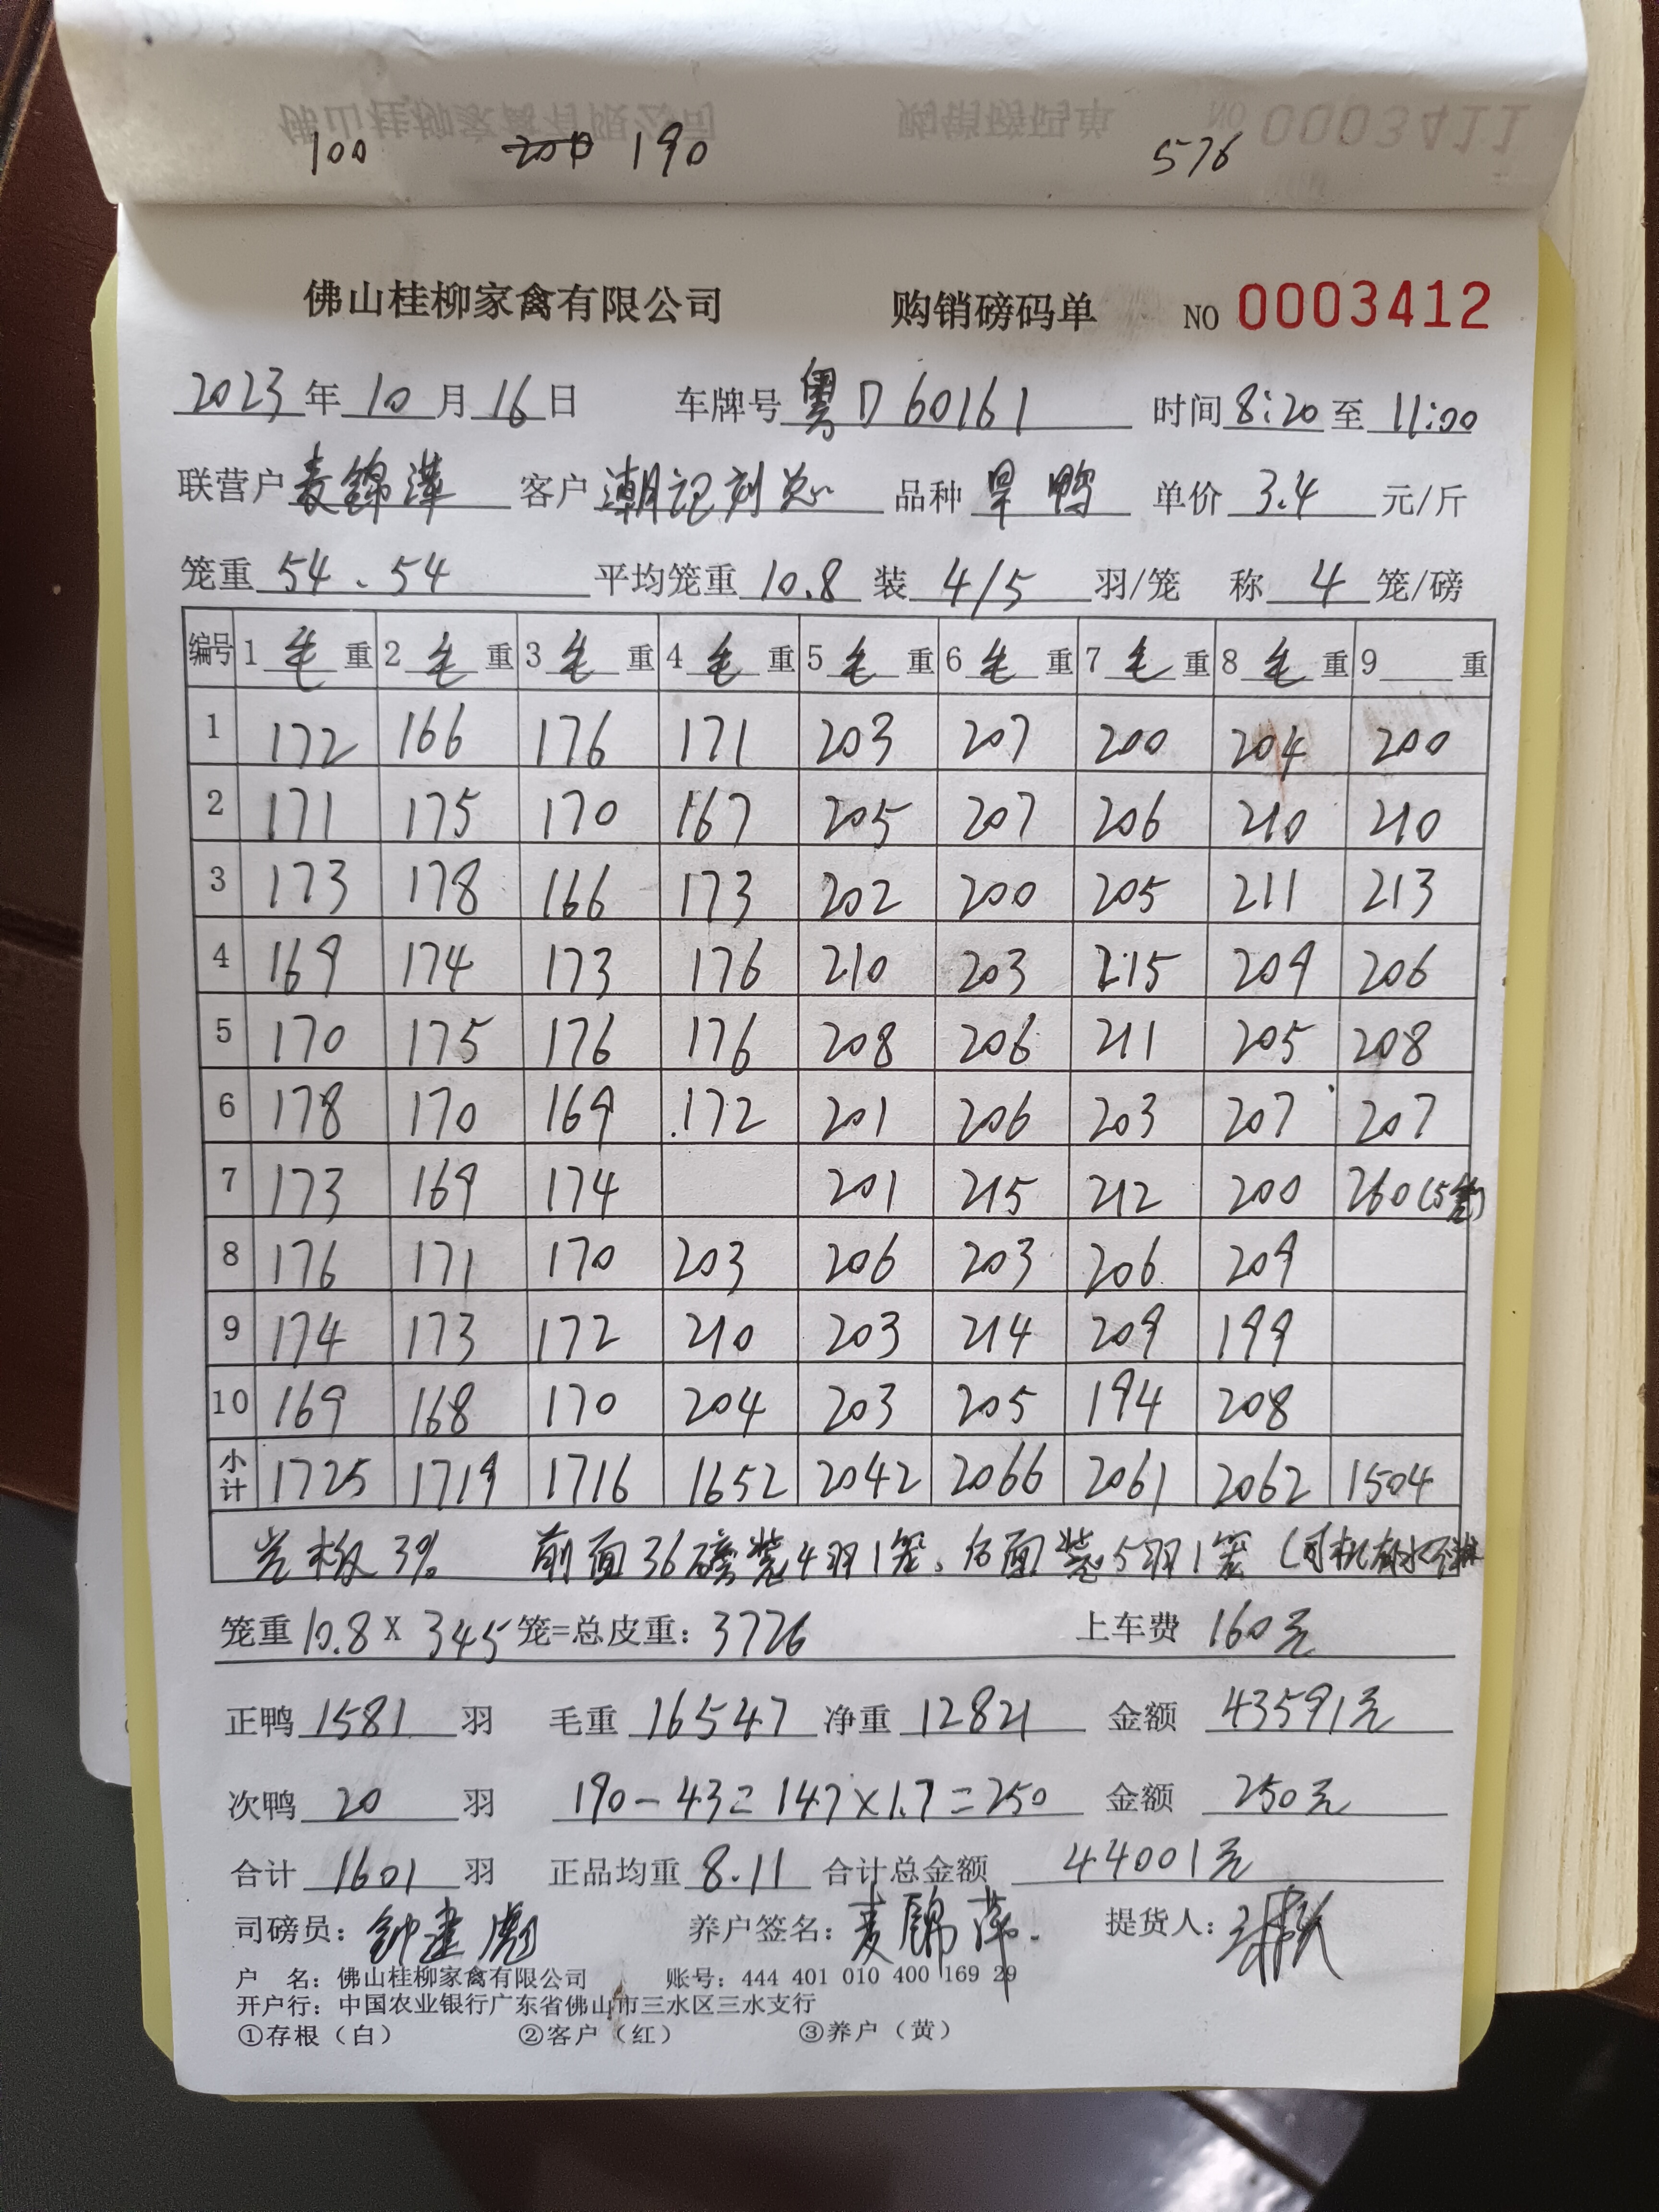 100 200 190 576
佛山桂柳家禽有限公司 购销磅码单 NO 0003412
2023年10月16日 车牌号 粤D60161 时间 8:20 至 11:00
联营户 麦锦萍 客户 潮记刘总 品种 旱鸭 单价 3.4 元/斤
笼重 54、54 平均笼重 10.8 装 4/5 羽/笼 称 4 笼/磅
编号 1 毛 重 2 毛 重 3 毛 重 4 毛 重 5 毛 重 6 毛 重 7 毛 重 8 毛 重 9 重
1 172 166 176 171 203 207 200 204 200
2 171 175 170 167 205 207 206 210 210
3 173 178 166 173 202 200 205 211 213
4 169 174 173 176 210 203 215 209 206
5 170 175 176 176 208 206 211 205 208
6 178 170 169 172 201 206 203 207 207
7 173 169 174 201 215 212 200 260(5笼)
8 176 171 170 203 206 203 206 209
9 174 173 172 210 203 214 209 199
10 169 168 170 204 203 205 194 208
小计 1725 1719 1716 1652 2042 2066 2061 2062 1504
3% 前面36磅装4羽1笼、后面装5羽1笼
笼重 10.8 X 345 笼=总皮重: 3726 上车费 160元
正鸭 1581 羽 毛重 16547 净重 12821 金额 43591元
次鸭 20 羽 190-43=147×1.7=250 金额 250元
合计 1601 羽 正品均重 8.11 合计总金额 44001元
司磅员: 钟建彪 养户签名: 麦锦萍 提货人:
户 名: 佛山桂柳家禽有限公司 账号: 444 401 010 400 169 29
开户行: 中国农业银行广东省佛山市三水区三水支行
①存根（白） ②客户（红） ③养户（黄）